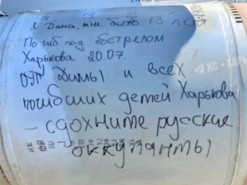 Я Дима, мне было 13 лет
Погиб под обстрелом
Харькова 20.07.
От Димы и всех
погибших детей Харькова
– сдохните русские
оккупанты